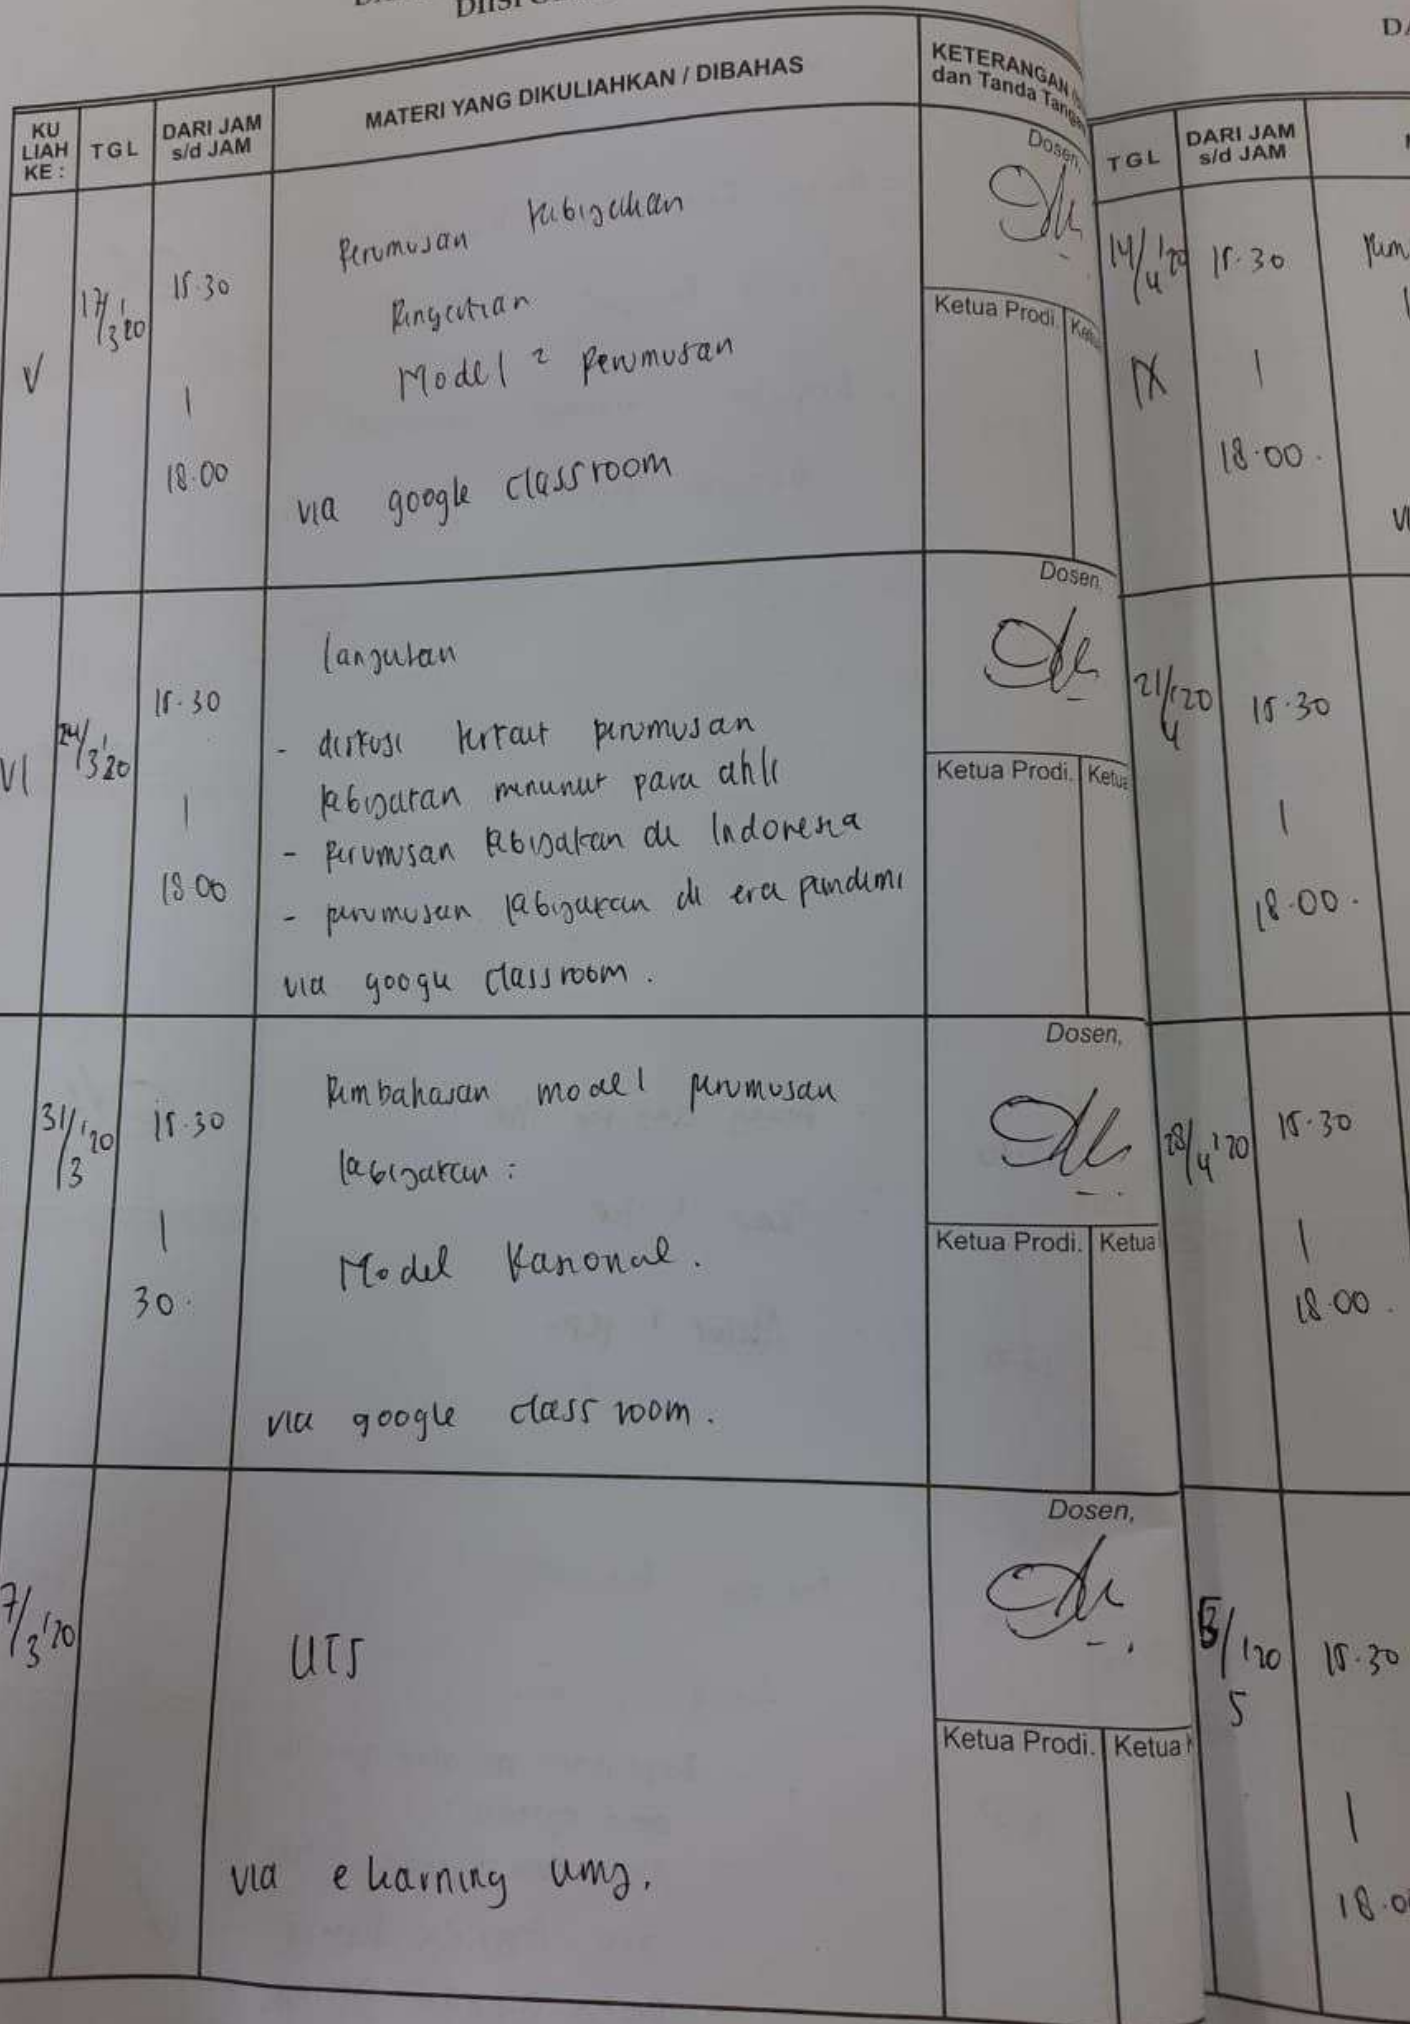 DIISI
KU
LIAH
KE :
TGL
DARI JAM
s/d JAM
MATERI YANG DIKULIAHKAN / DIBAHAS
KETERANGAN
dan Tanda Tangan
V
17/3 '20
15.30
|
18.00
Perumusan kebijakan
Pengertian
Model 2 Perumusan
via google classroom
Dosen,
Ketua Prodi.
VI
24/3 '20
15.30
|
18.00
lanjutan
- diskusi terkait perumusan
kebijakan menurut para ahli
- perumusan kebijakan di Indonesia
- perumusan kebijakan di era pandemi
via google classroom.
Dosen,
Ketua Prodi. Ketua
31/3 '20
15.30
|
30.
Pembahasan model perumusan
kebijakan :
Model Rasional.
via google class room.
Dosen,
Ketua Prodi. Ketua
7/3 '20
UTS
via e learning umj.
Dosen,
Ketua Prodi. Ketua
DA
TGL
DARI JAM
s/d JAM
14/4 '20
IX
15.30
|
18.00.
21/4 '20
15.30
|
18.00.
28/4 '20
15.30
|
18.00.
/5 '20
15.30
|
18.0